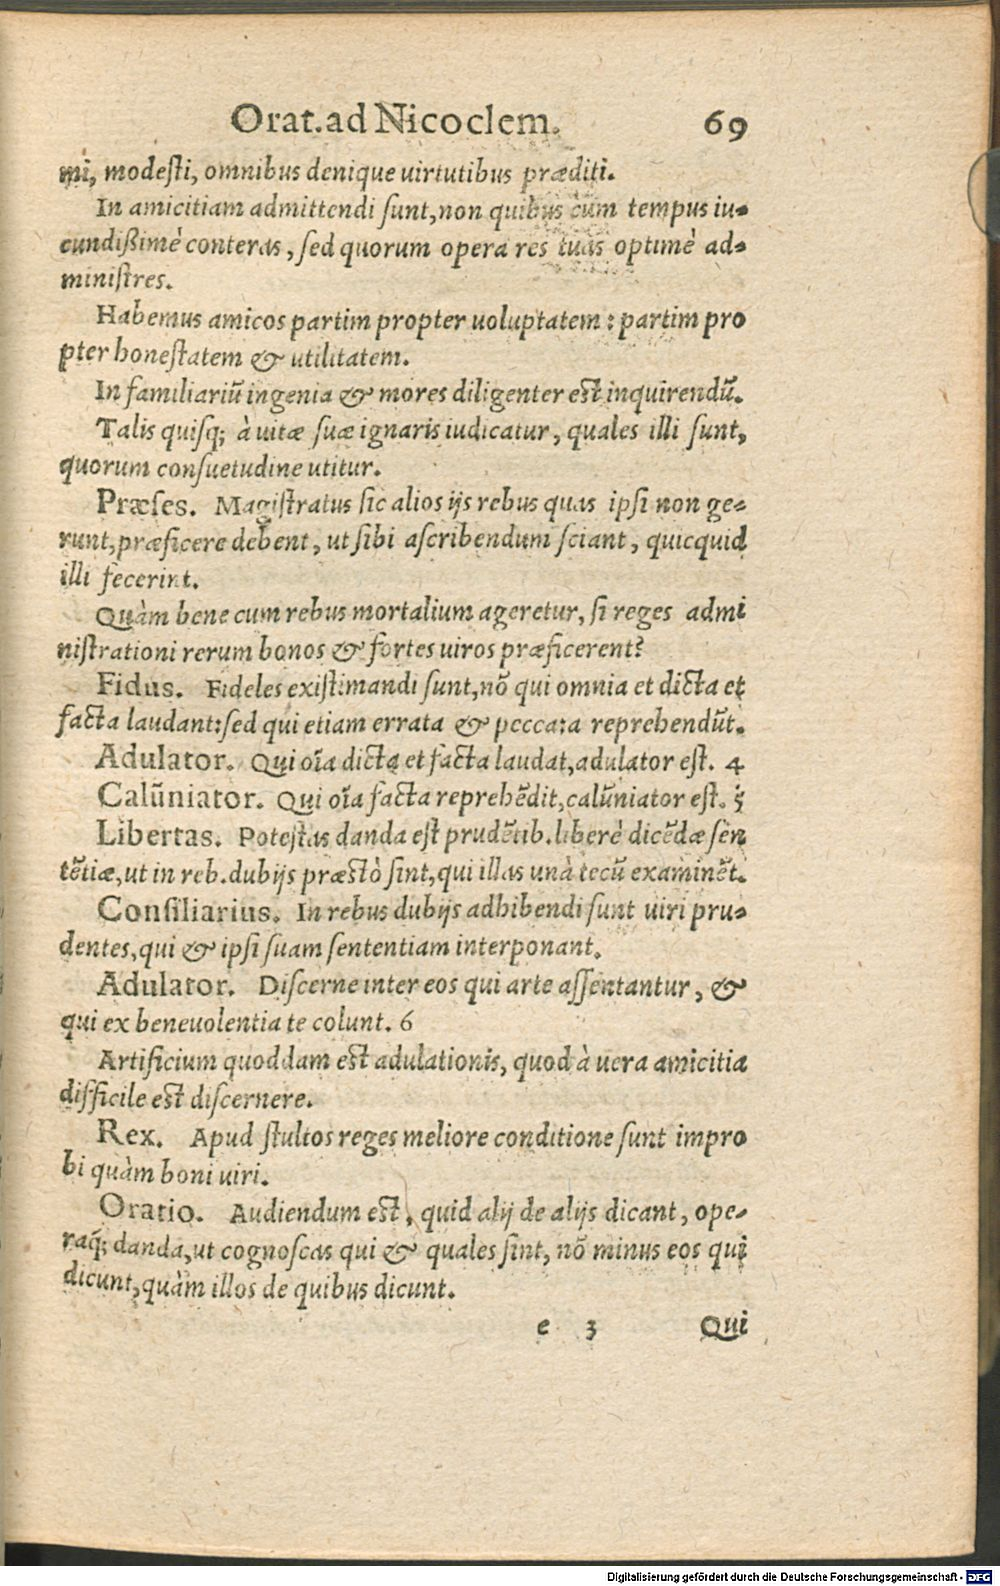 Orat. ad Nicoclem. 69
mi, modesti, omnibus denique uirtutibus præditi.
In amicitiam admittendi sunt, non quibus cum tempus iu-
cundißimè conteras, sed quorum opera res tuas optimè ad-
ministres.
Habemus amicos partim propter uoluptatem: partim pro
pter honestatem & utilitatem.
In familiariũ ingenia & mores diligenter est inquirendũ.
Talis quisq; à uitæ suæ ignaris iudicatur, quales illi sunt,
quorum consuetudine utitur.
Præses. Magistratus sic alios ijs rebus quas ipsi non ge-
runt, præficere debent, ut sibi ascribendum sciant, quicquid
illi fecerint.
Quàm bene cum rebus mortalium ageretur, si reges admi
nistrationi rerum bonos & fortes uiros præficerent?
Fidus. Fideles existimandi sunt, nõ qui omnia et dicta et
facta laudant: sed qui etiam errata & peccata reprehendũt.
Adulator. Qui oĩa dicta et facta laudat, adulator est. 4
Calũniator. Qui oĩa facta reprehẽdit, calũniator est. 5
Libertas. Potestas danda est prudẽtib. liberè dicẽdæ sen
tẽtiæ, ut in reb. dubijs præstò sint, qui illas unà tecũ examinẽt.
Consiliarius. In rebus dubijs adhibendi sunt uiri pru-
dentes, qui & ipsi suam sententiam interponant.
Adulator. Discerne inter eos qui arte assentantur, &
qui ex beneuolentia te colunt. 6
Artificium quoddam est adulationis, quod à uera amicitia
difficile est discernere.
Rex. Apud stultos reges meliore conditione sunt impro
bi quàm boni uiri.
Oratio. Audiendum est, quid alij de alijs dicant, ope-
raq́; danda, ut cognoscas qui & quales sint, nõ minus eos qui
dicunt, quàm illos de quibus dicunt.
e 3 Qui
Digitalisierung gefördert durch die Deutsche Forschungsgemeinschaft - DFG